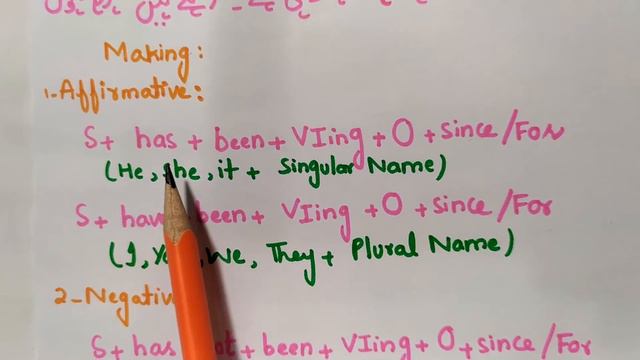 Making:
1-Affirmative:
S+ has + been + VIing + O + since/For
(He, she, it + Singular Name)
S+ have been + VIing +O + since/For
(I, You, We, They + Plural Name)
2-Negative
S+ has not + been + VIing + O + since/For